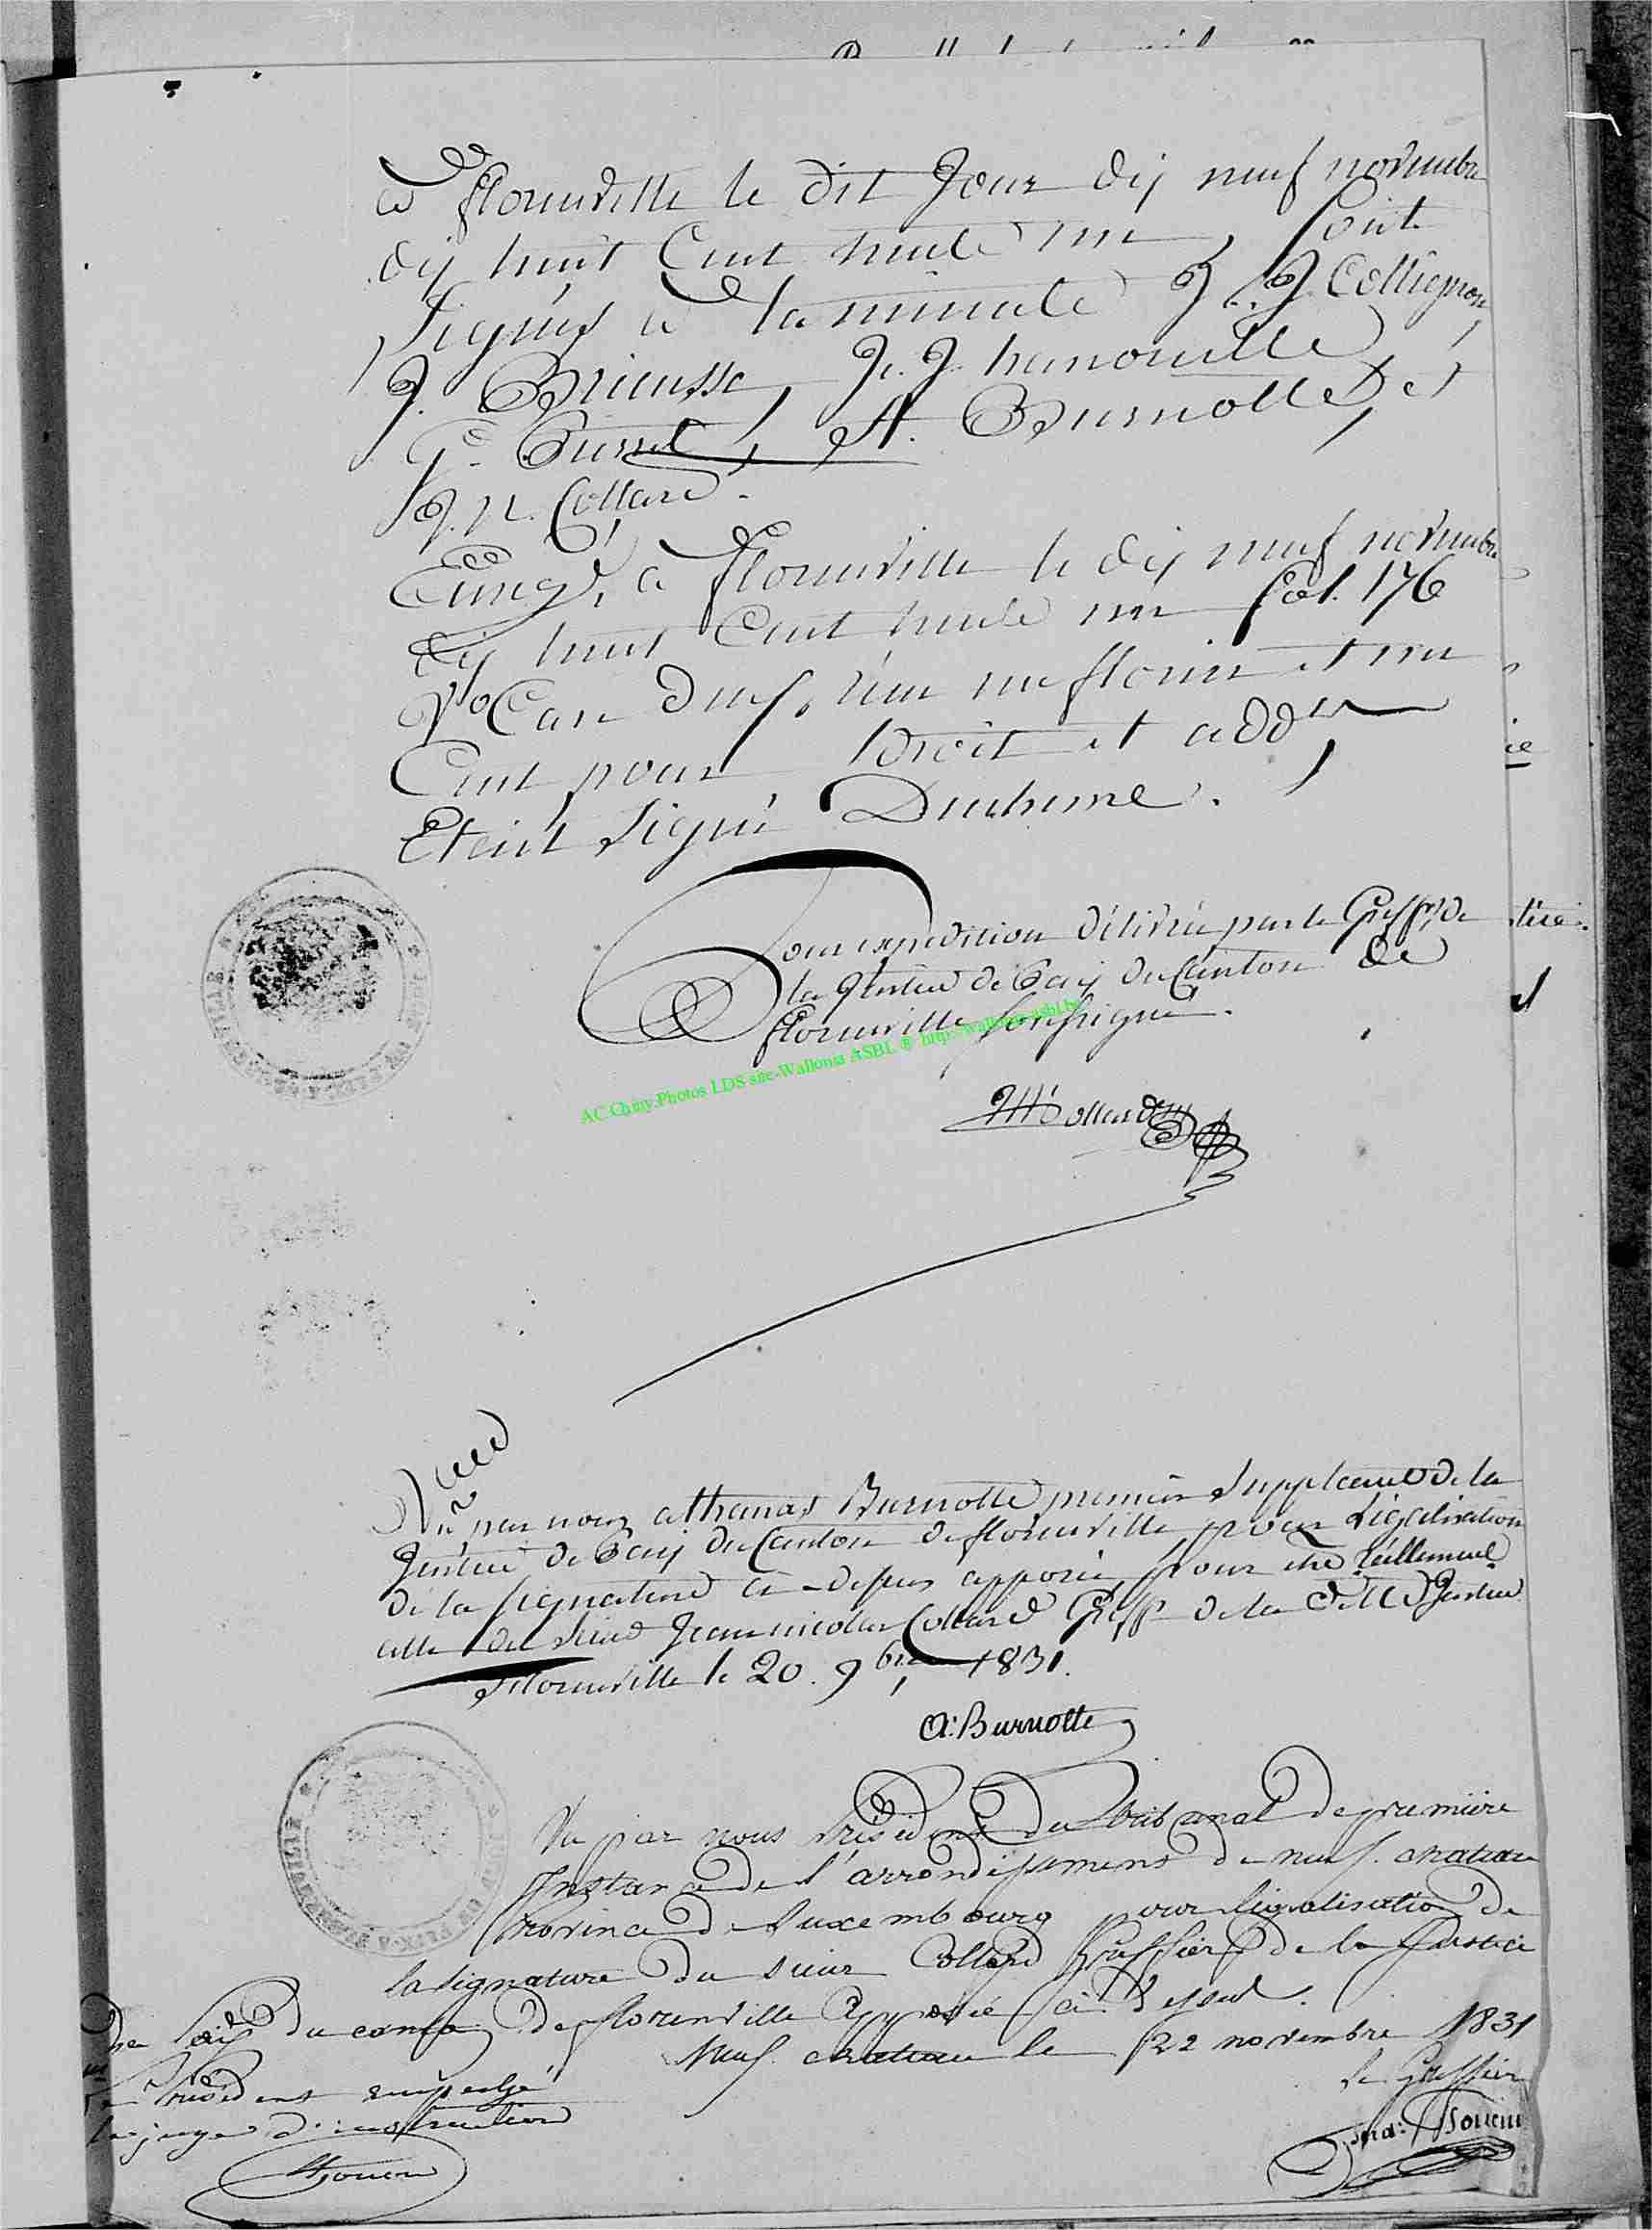 à florenville le dit Jour dix neuf novembre
dix huit Cent trente un, sont
signés à la minute J. J. Collignon,
J. Bricusse, J. J. hanouille,
A. Burnotte, et
J. N. Collard.
Enregé, à florenville le dix neuf novembre
dix huit Cent trente un fol. 176
Vo Case deux, reçu un florin et un
Cent pour Droit et addls
Etait signé Duchesne.
Pour expedition délivrée par le Greffr, de
la Justice de Paix du Canton de
florenville soussigné.
JN Collard
Vu par nous athanas Burnotte premier Suppleant de la
Justice de Paix du Canton de florenville, pour Légalisation
de la signature ci-dessus apposée pour etre réellement
celle du sieur Jean nicolas Collard Greffr de la dite Justice
florenville le 20. 9bre 1831.
A: Burnotte
Vu par nous Président du tribunal de premiere
Instance de l'arrondissement de neuf. chateau
Province de Luxembourg pour légalisation de
la signature du sieur Collard Greffier de la Justice
de Paix du canton de florenville apposée ci dessus.
Neuf. chateau le 22 novembre 1831
le Greffier
le Président empeché
le juge d'instruction
JUSTICE DE PAIX
AC.Chiny.Photos LDS site-Wallonia ASBL ® http://wallonia-asbl.be